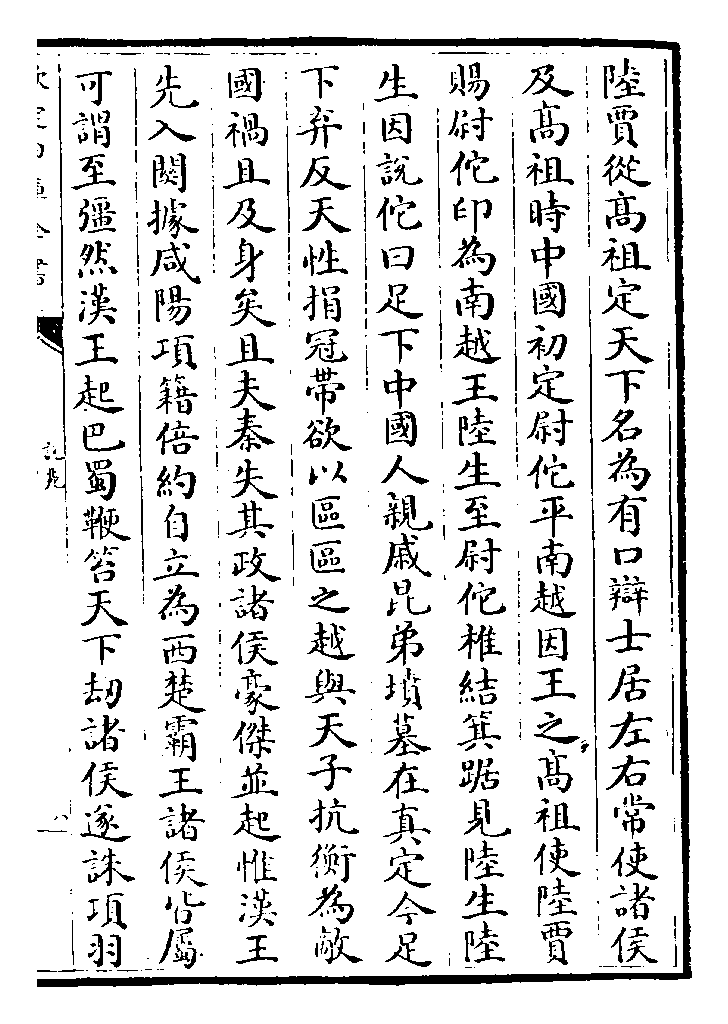 陸賈從髙祖定天下名為有口辯士居左右常使諸侯
及髙祖時中國初定尉佗平南越因王之髙祖使陸賈
賜尉佗印為南越王陸生至尉佗椎結箕踞見陸生陸
生因說佗曰足下中國人親戚昆弟墳墓在真定今足
下弃反天性捐冠帶欲以區區之越與天子抗衡為敵
國禍且及身矣且夫秦失其政諸侯豪傑並起惟漢王
先入闗據咸陽項籍倍約自立為西楚霸王諸侯皆屬
可謂至彊然漢王起巴蜀鞭笞天下劫諸侯遂誅項羽